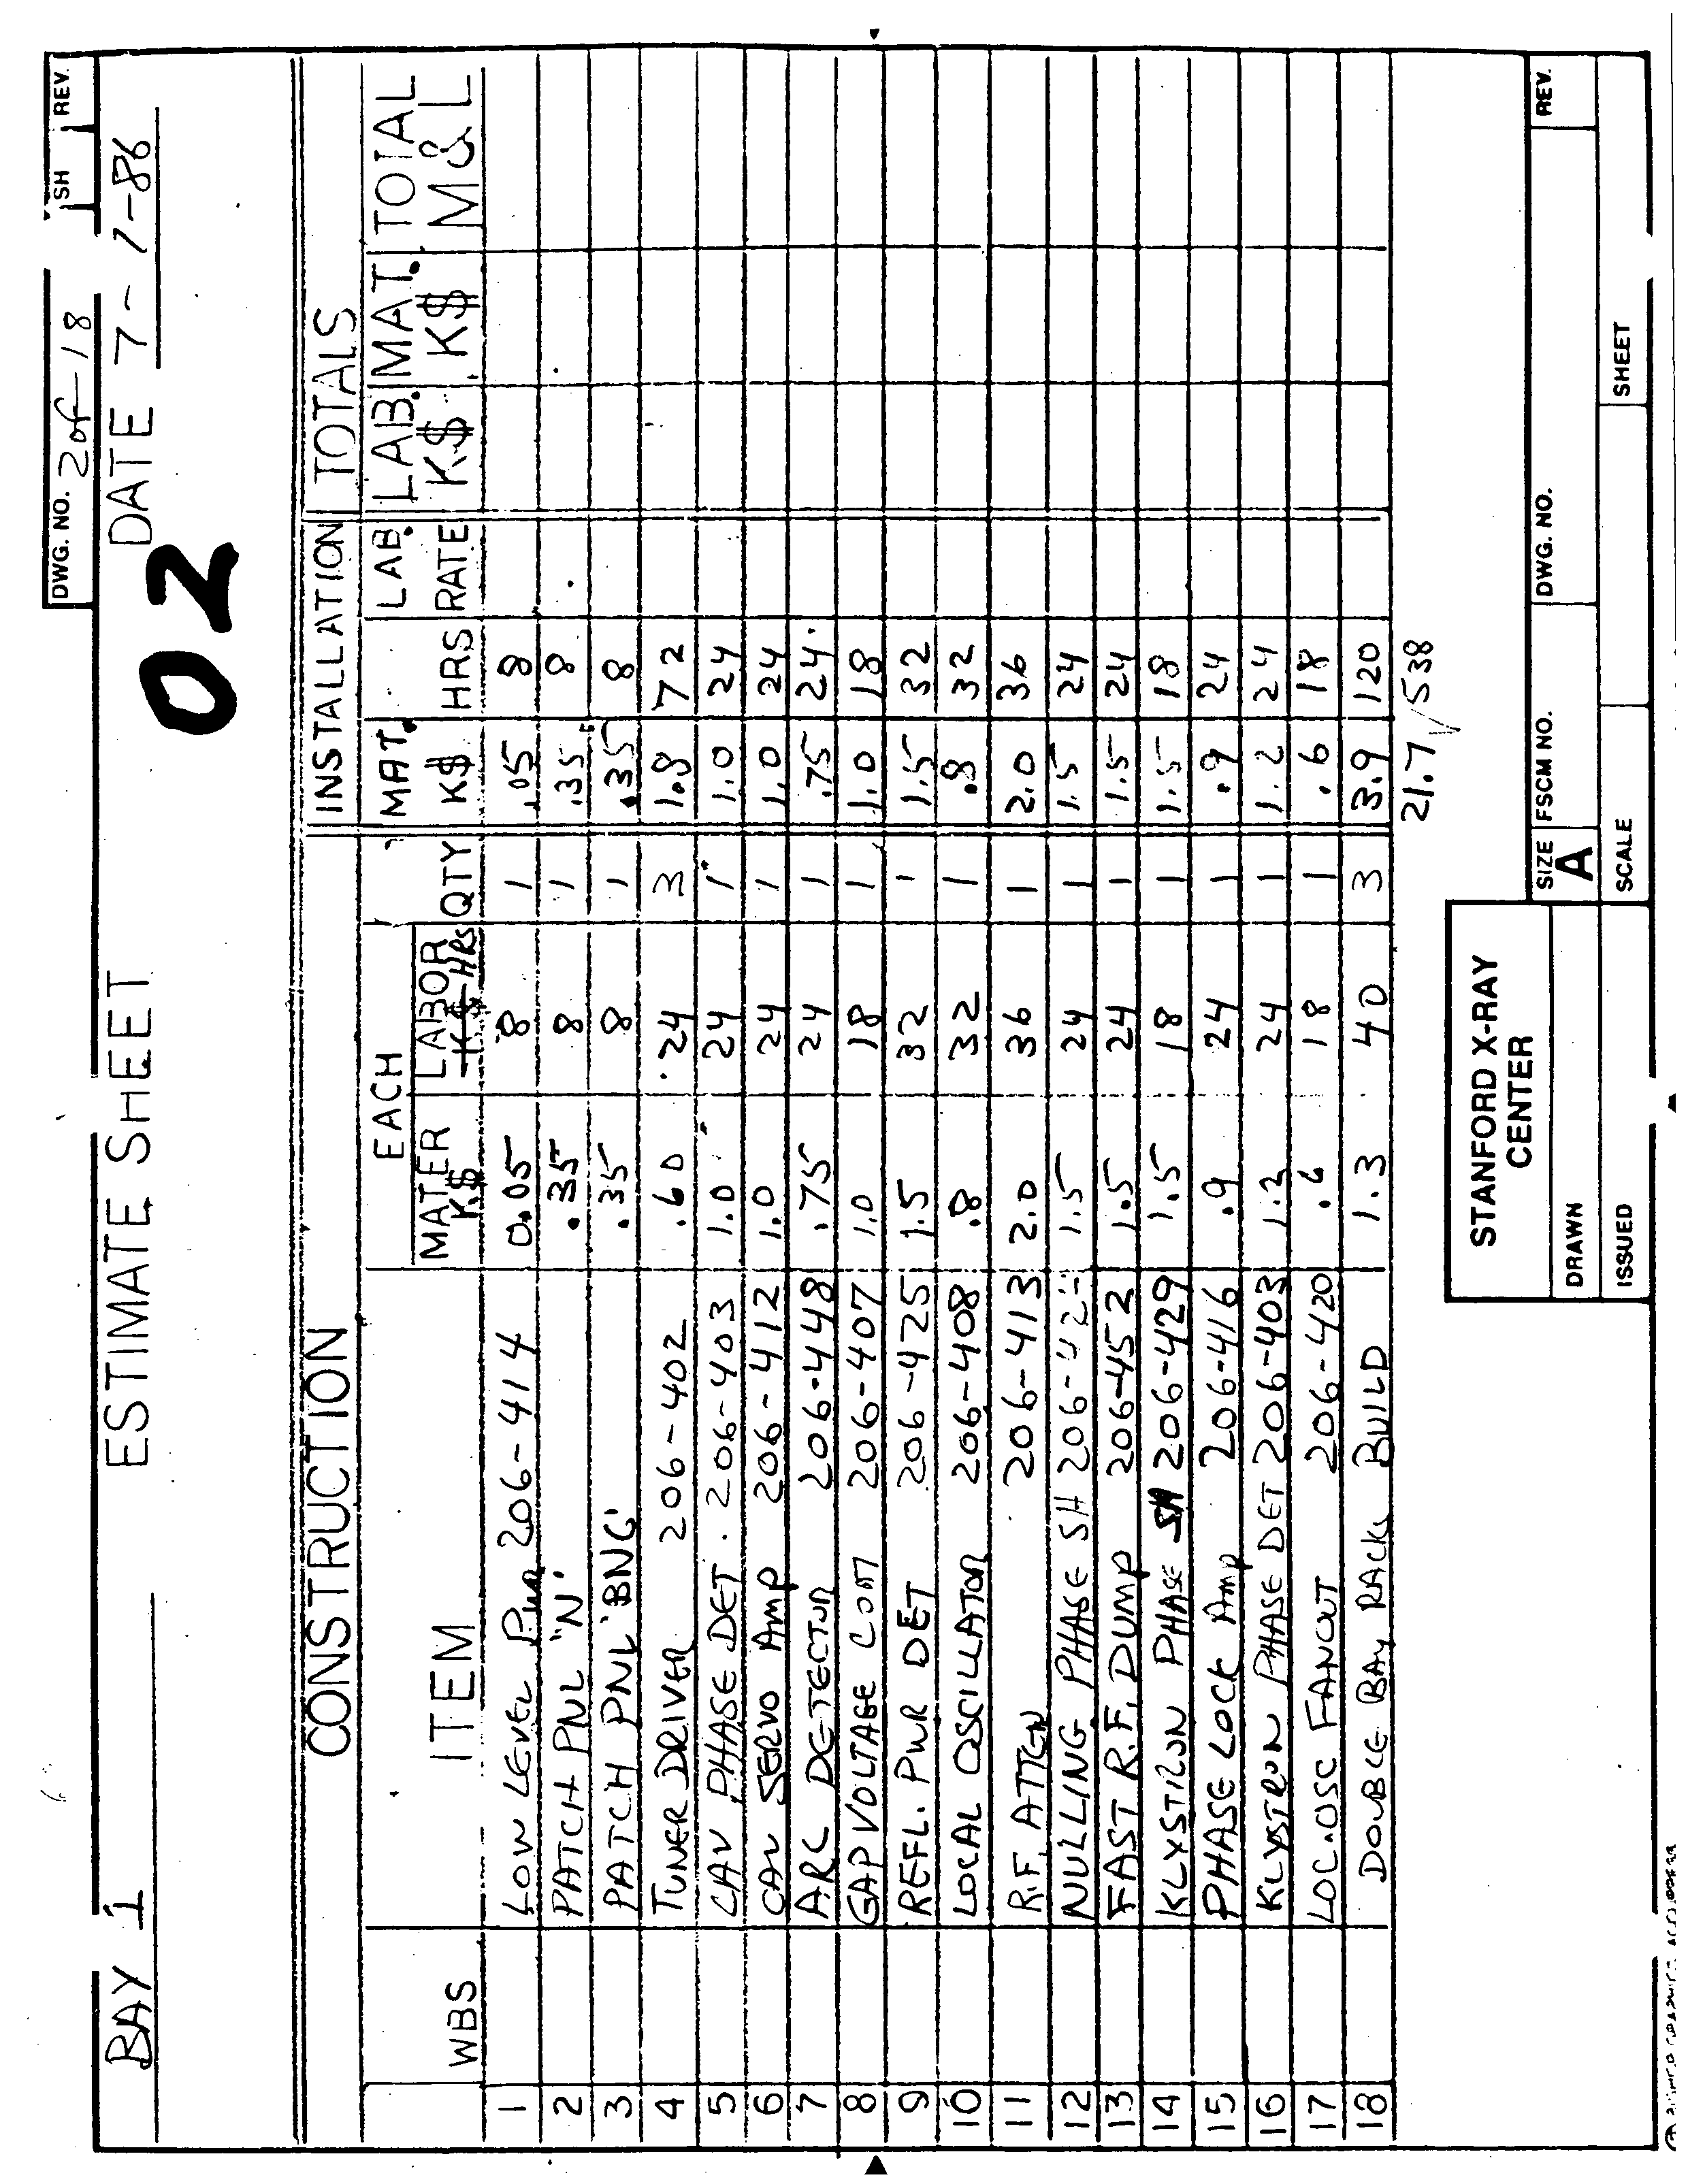 DWG. NO. 2 of 18 SH REV.
BAY 1 ESTIMATE SHEET DATE 7-1-86
02
CONSTRUCTION INSTALLATION TOTALS
EACH
WBS ITEM MATER K$ LABOR K$ HRS QTY MAT. K$ HRS LAB. RATE LAB. K$ MAT. K$ TOTAL M&L
1 LOW LEVEL PWR 206-414 0.05 8 1 .05 8
2 PATCH PNL "N" .35 8 1 .35 8
3 PATCH PNL 'BNC' .35 8 1 .35 8
4 TUNER DRIVER 206-402 .60 24 3 1.8 72
5 CAV PHASE DET. 206-403 1.0 24 1 1.0 24
6 CAV SERVO AMP 206-412 1.0 24 1 1.0 24
7 ARC DETECTOR 206-448 .75 24 1 .75 24
8 GAP VOLTAGE CONT 206-407 1.0 18 1 1.0 18
9 REFL. PWR DET 206-425 1.5 32 1 1.5 32
10 LOCAL OSCILLATOR 206-408 .8 32 1 .8 32
11 R.F. ATTEN 206-413 2.0 36 1 2.0 36
12 NULLING PHASE SH 1.5 24 1 1.5 24
13 FAST R.F. DUMP 206-452 1.5 24 1 1.5 24
14 KLYSTRON PHASE SH 206-429 1.5 18 1 1.5 18
15 PHASE LOCK AMP 206-416 .9 24 1 .9 24
16 KLYSTRON PHASE DET 206-403 1.2 24 1 1.2 24
17 LOC. OSC FANOUT 206-420 .6 18 1 .6 18
18 DOUBLE BAY RACK BUILD 1.3 40 3 3.9 120
21.7 √ 538
STANFORD X-RAY
CENTER
SIZE A FSCM NO. DWG. NO. REV.
DRAWN
ISSUED SCALE SHEET